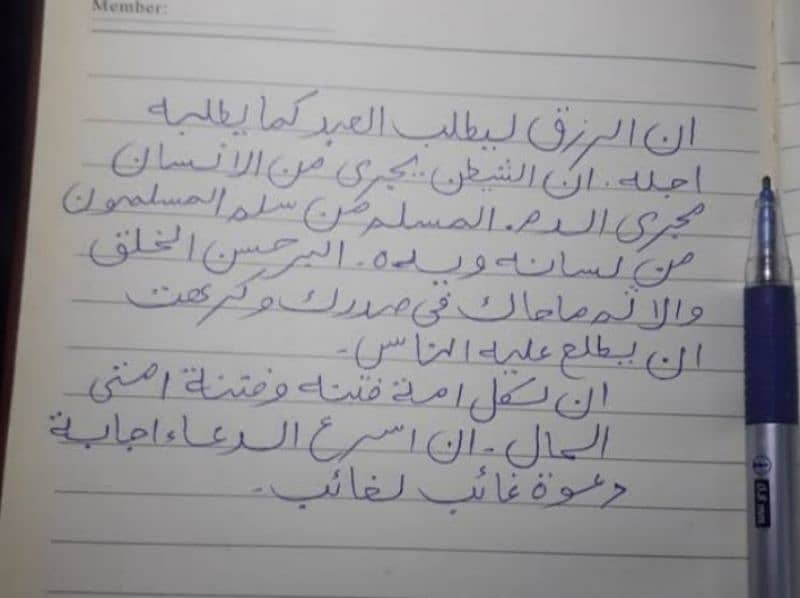 Member:
ان الرزق ليطلب العبد كما يطلبه
اجله. ان الشيطن يجرى من الانسان
مجرى الدم. المسلم من سلم المسلمون
من لسانه ويده. البر حسن الخلق
والاثم ماحاك فى صدرك وكرهت
ان يطلع عليه الناس.
ان لكل امة فتنه وفتنة امتى
المال. ان اسرع الدعاء اجابة
دعوة غائب لغائب.
0.8 mm